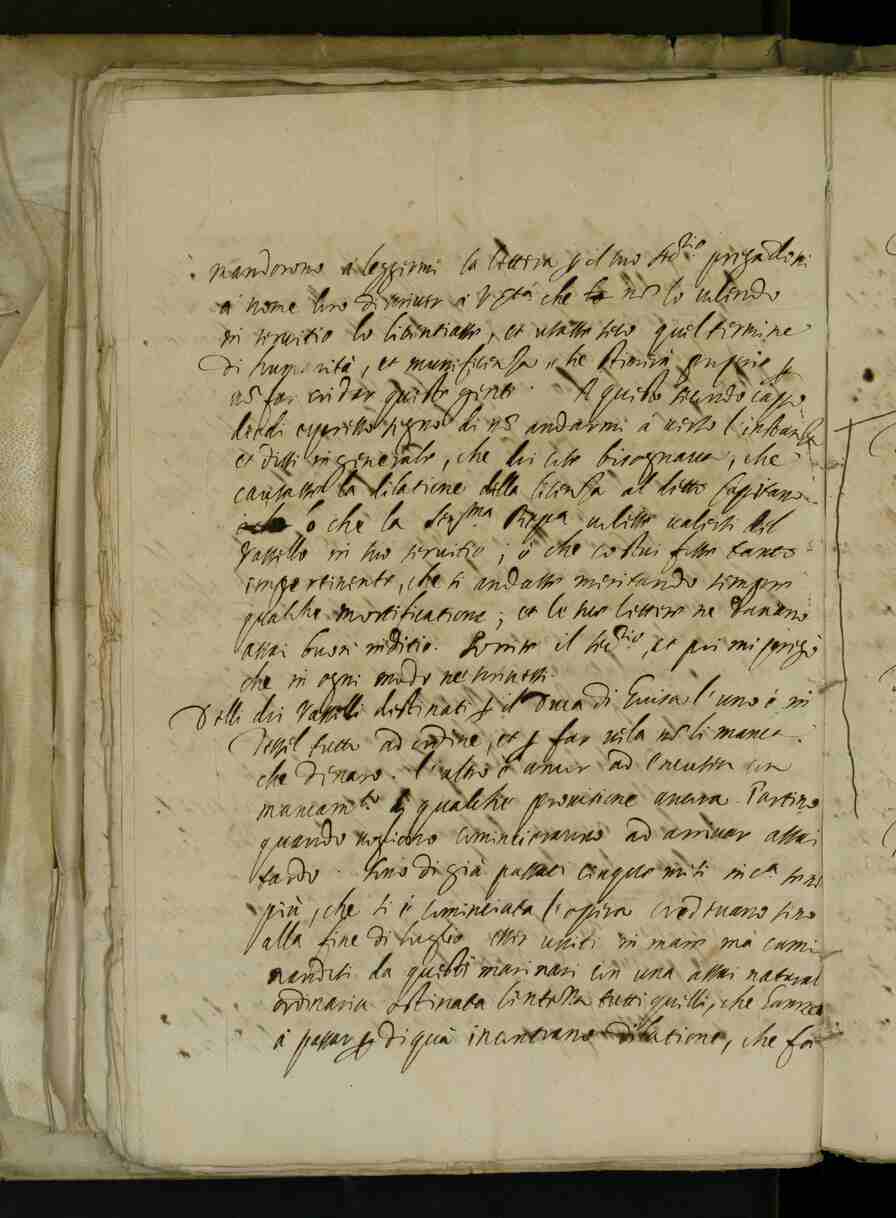 mandorono à leggermi la lettera p il suo Seg.rio pregandomi
à nome loro di scriver à V.S.tà che no lo volendo
in servitio lo licentiasse, et usasse seco quel termine
di humanità, et munificensa che stimerà proprio p
no far cridar queste genti. A questo secondo cappo
diedi espresso segno di no andarmi à verso l'instanza
et dissi in generale, che di certo bisognava, che
causasse la dilatione della licenza al detto Capitano
ò che la Ser.ma Rep.a volesse valersi del
Vassello in suo servitio; ò che costui fusse tanto
impertinente, che si andasse meritando sempre
qualche mortificatione; et le sue lettere ne davano
assai buon inditio. Sorrise il Seg.rio, et poi mi pregò
che in ogni modo ne scrivessi.
Delli doi Vasselli destinati p il Duca di Guisa l'uno è in
Texel tutto ad ordine, et p far vela no li manca
che Dinaro. l'altro è ancor ad Encusen con
mancam.to di qualche provisione ancora. Partino
quando vogliono comincieranno ad arrivar assai
tardo. sono di già passati cinque mesi in c.a
più, che si è cominciata l'opera credevano sino
alla fine di luglio esser usciti in mare mà
da questi marinari con una assai natural
ordinaria ostinata lentezza tutti quelli, che hanno
à passar p di quà incontrano dilatione, che